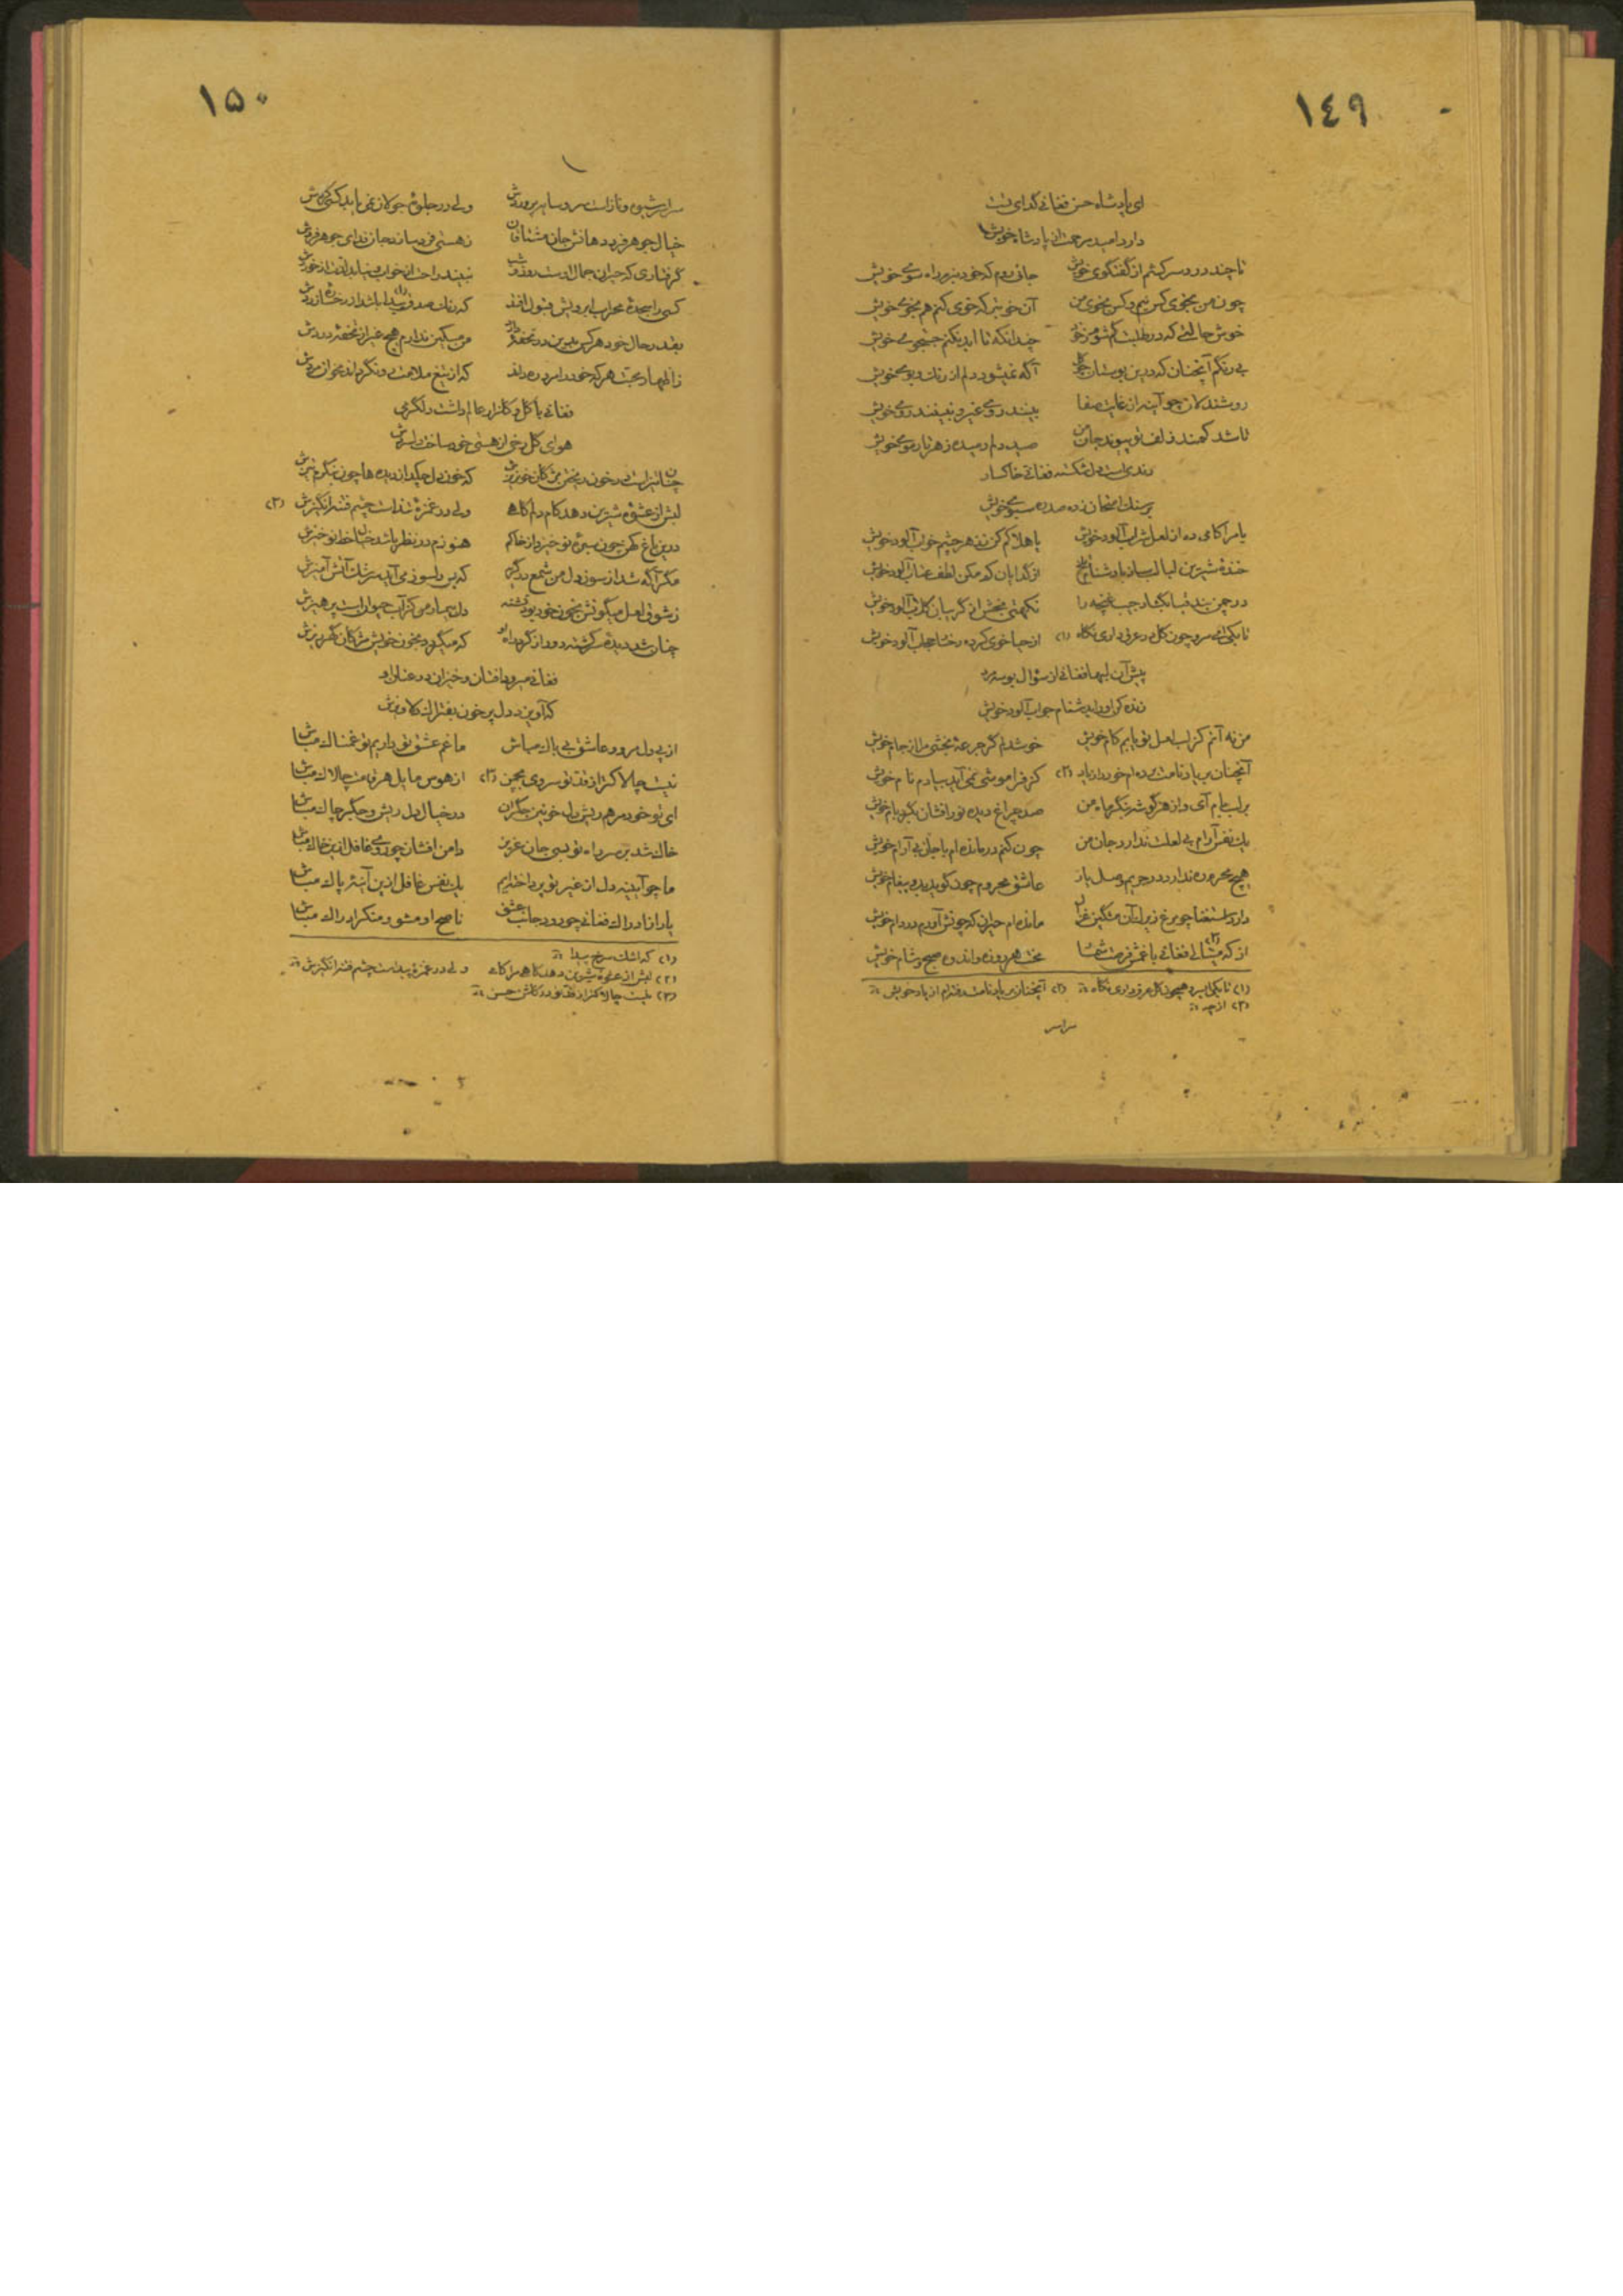 ١٤٩
ای پادشاه حسن فغانی گدای تست
دارد امید مرحمت از پادشاه خویش
تا چند درد سر کشم از گفتگوی خویش جائی روم که خود نبرم راه سوی خویش
چون من بخوی کس نیم و کس بخوی من آن خوبتر که خوی کنم هم بخوی خویش
خوش حالتی که در طلبت گم شوم ز خود چندانکه تا ابد نکنم جستجوی خویش
بی رنگم آنچنان که درین بوستان چو گل آگه نمیشود دلم از رنگ و بوی خویش
روشندلان چو آینه از غایت صفا بینند روی غیر و نبینند روی خویش
تا شد کمند زلف تو پیوند جان من صد دام دیده ز هر تار موی خویش
رندی است دل شکسته فغانی خاکسار
بر سنگ امتحان زده صد ره سبوی خویش
یا مرا کامی ده از لعل شراب آلود خویش یا هلاکم کن بزهر چشم خواب آلود خویش
خنده شیرین لبالب ساز با دشنام تلخ از گدایان کم مکن لطف عتاب آلود خویش
در چمن بند قبا بگشا و جیب غنچه را نکهتی بخش از گریبان گلاب آلود خویش
تا بکی ای سرو چون گل در عرق داری نگاه (١) از حیا خوی کرده رخسار حجاب آلود خویش
پیش آن لبها فغانی از سؤال بوسه مرد
زنده کن او را بدشنام جواب آلود خویش
من نه آنم کز لب لعل تو یابم کام خویش خوشدلم گر جرعهٔ بخشی مرا از جام خویش
آنچنان بر یاد نامت برده ام خود را ز یاد (٢) کز فراموشی نمی آید بیادم نام خویش
بر لب بام آی و از هر گوشه بنگر ماه من صد چراغ دیده نورافشان بگرد بام خویش
یک نفس آرام بی لعلت ندارد جان من چون کنم درمانده ام با جان بی آرام خویش
هیچ محرم ره ندارد در حریم وصل یار عاشق محروم چون گوید بدو پیغام خویش
دارد استغنا چو مرغ زیرک آن مشکین غزال مانده ام حیران که چونش آورم در دام خویش
از که مینالی فغانی با غمش فرصت شمار (٣) عشرت هر روزه و اندوه صبح و شام خویش
(١) تا بکی ای سرو همچون گل عرق داری نگاه (٢) آنچنان بر یاد نامت رفته ام از یاد خویش
(٣) از چه
سراسر
١٥٠
سراسر شیوه و نازست سرو سایه پروردش ولی در جلوهٔ جولان نمی یابد کسی گردش
خیال جوهر فرد دهانش جان مشتاقان ز هستی فرد سازد جان فدای جوهر فردش
گرفتاری که حیران جمال اوست روز و شب نبیند راحت از خواب و نیابد لذت از خوردش
کسی را سجدهٔ محراب ابرویش قبول افتد که رنگ صدق پیدا باشد از رخسارهٔ زردش (١)
بقدر حال خود هر کس بدین در تحفهٔ دارد من مسکین ندارم هیچ غیر از تحفهٔ دردش
ز اظهار محبت هر که خود را مرد ره داند که از تیغ ملامت رو نگرداند مخوان مردش
فغانی با گل و گلزار عالم داشت دلگرمی
هوای گلرخی از هستی خود ساخت دلسردش
چنان تیزست در خون ریختن مژگان خونریزش که خون دل چکد از دیده ها چون بنگرم تیزش
لبش از عشوهٔ شیرین دهد کام دلم گاهی ولی در غمزهٔ تندست چشم فتنه انگیزش (٢)
درین باغ کهن چون سبزهٔ نو خیزد از خاکم هنوزم در نظر باشد خیال خط نوخیزش
مگر آگه شد از سوز دل من شمع در گریه که بس دلسوز می آید سرشک آتش آمیزش
ز شوق لعل میگونش بخون خود بود تشنه دل بیمار من کز آب حیوانست پرهیزش
چنان شد دیدهٔ سرگشته دور از گرد راه او که میگردد بخون خویش مژگان گهرریزش
فغانی میرود افتان و خیزان در عنان او
که آویزد دل پر خون بفتراک دلاویزش
از پی دل مرو و عاشق بی باک مباش ما غم عشق تو داریم تو غمناک مباش
نیست چالاکتر از قد تو سروی بچمن (٣) از هوس مایل هر قامت چالاک مباش
ای تو خود مرهم ریش دل خونین جگران در خیال دل ریش و جگر چاک مباش
خاک شد بر سر راه تو بسی جان عزیز دامن افشان چو روی غافل ازین خاک مباش
ما چو آیینه دل از غیر تو پرداخته ایم یک نفس غافل ازین آینهٔ پاک مباش
پا ز ادراک فغانی چو رود جانب عشق ناصح او مشو و منکر ادراک مباش
(١) که اشک سرخ پیدا
(٢) لبش از عشوهٔ شیرین دهد گاهی مرا کامی ولی در غمزهٔ پیداست چشم فتنه انگیزش
(٣) نیست چالاکتر از قد تو در گلشن حسن